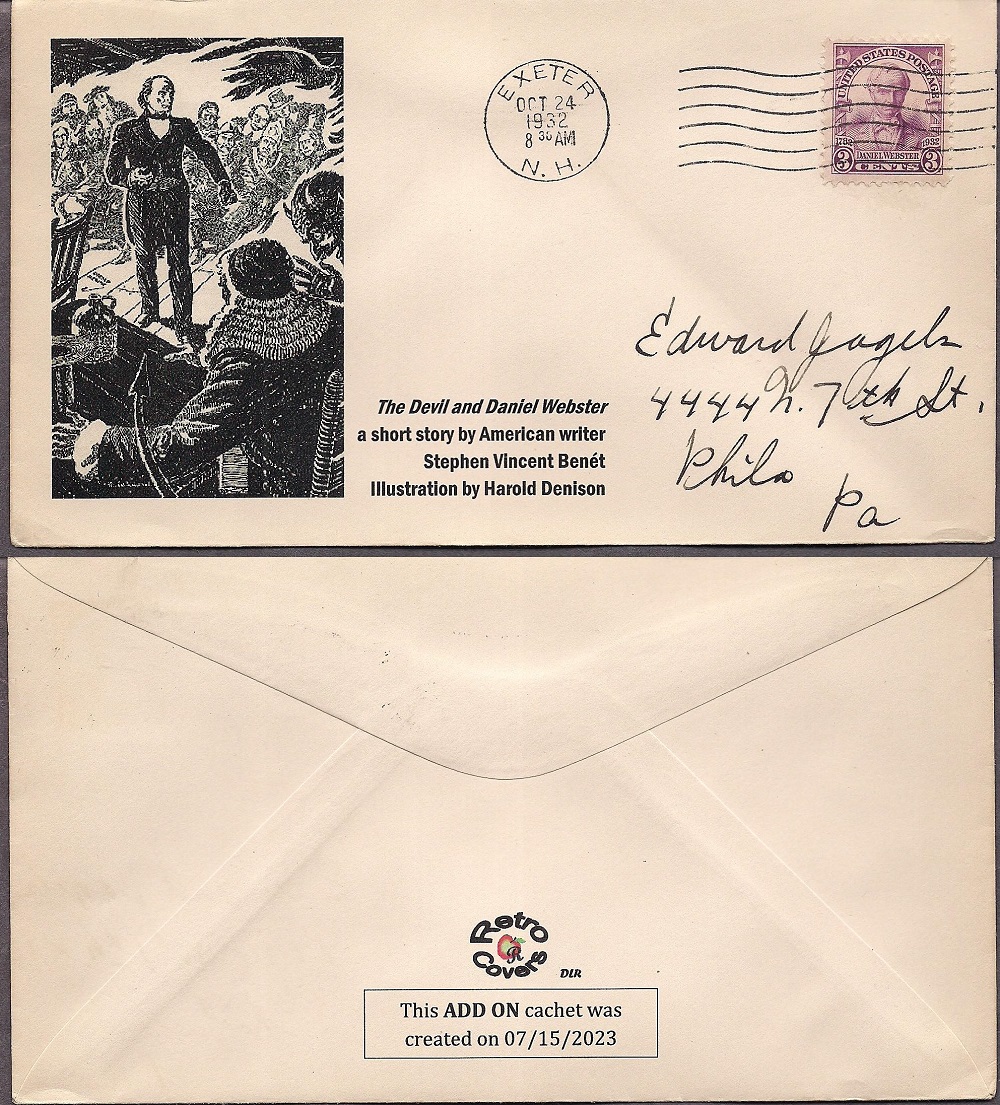 EXETER
OCT 24
1932
8 30 AM
N. H.
UNITED STATES POSTAGE
1782 1932
3 DANIEL WEBSTER 3
CENTS
Edward Jagels
4444 N. 7th St.
Phila
Pa
The Devil and Daniel Webster
a short story by American writer
Stephen Vincent Benét
Illustration by Harold Denison
Retro
R
Covers
DLR
This ADD ON cachet was
created on 07/15/2023